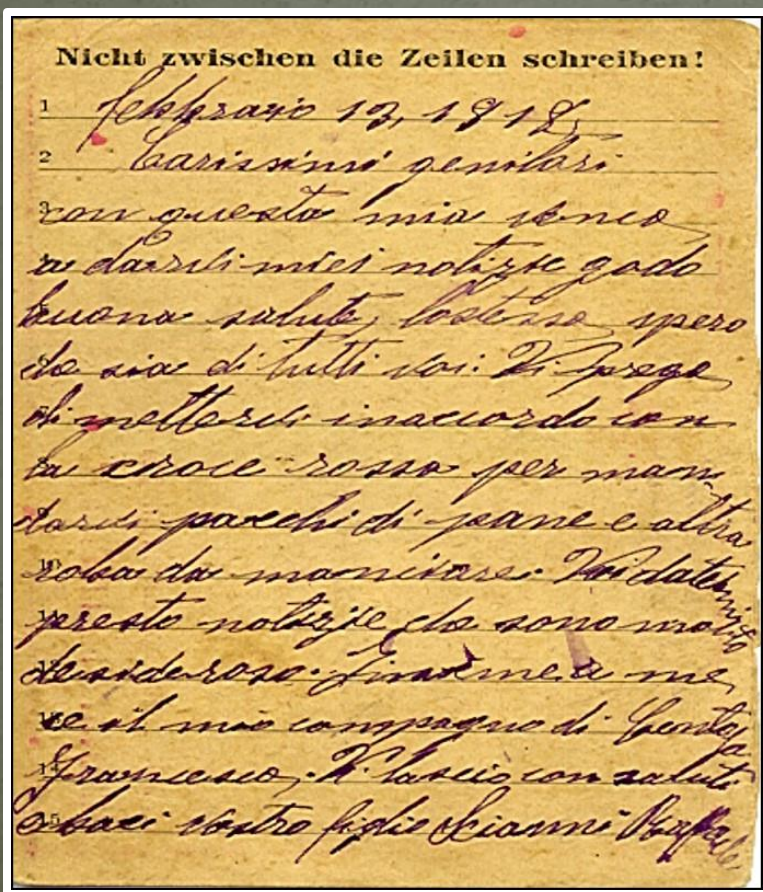 Nicht zwischen die Zeilen schreiben!
1 febbraio 12, 1918,
2 Carissimi genitori
3 con questa mia vengo
a darvi miei notizie godo
buona salute, lostesso, spero
che sia di tutti voi. Vi prego
di mettervi inaccordo con
la croce rossa per man
darci pacchi di pane e altra
roba da mangiare.
presto notizie che sono molto
desideroso. Insieme a me
ce il mio compagno di
Francesco, Vi lascio con saluti
15 e baci vostro figlio Scianni